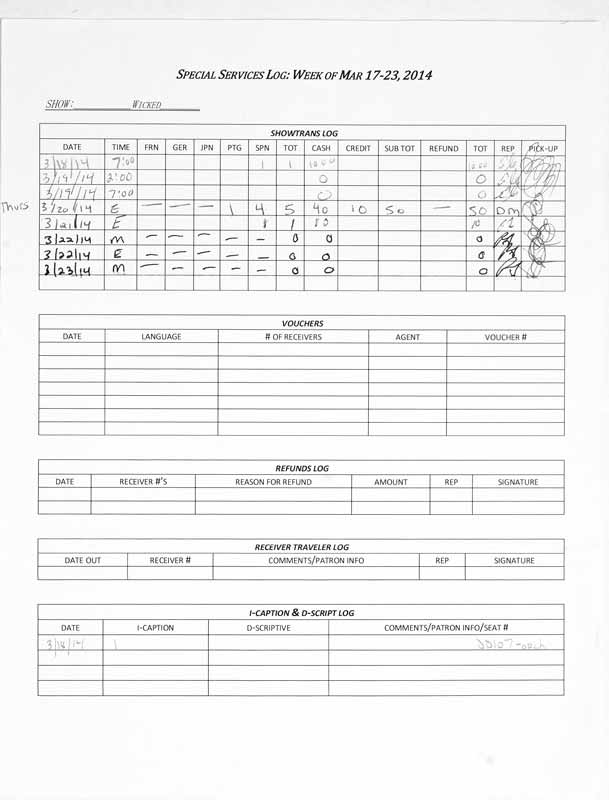 SPECIAL SERVICES LOG: WEEK OF MAR 17-23, 2014
SHOW: WICKED
SHOWTRANS LOG
DATE TIME FRN GER JPN PTG SPN TOT CASH CREDIT SUB TOT REFUND TOT REP PICK-UP
3/18/14 7:00 1 1 10.00 10.00
3/19/14 2:00 0 0
3/19/14 7:00 0 0
Thurs 3/20/14 E — — — 1 4 5 40 10 50 — 50 DM
3/21/14 E 1 1 10
3/22/14 M — — — — — 0 0 0
3/22/14 E — — — — — 0 0 0
3/23/14 M — — — — — 0 0 0
VOUCHERS
DATE LANGUAGE # OF RECEIVERS AGENT VOUCHER #
REFUNDS LOG
DATE RECEIVER #'S REASON FOR REFUND AMOUNT REP SIGNATURE
RECEIVER TRAVELER LOG
DATE OUT RECEIVER # COMMENTS/PATRON INFO REP SIGNATURE
I-CAPTION & D-SCRIPT LOG
DATE I-CAPTION D-SCRIPTIVE COMMENTS/PATRON INFO/SEAT #
3/18/14 1 DD107-orch